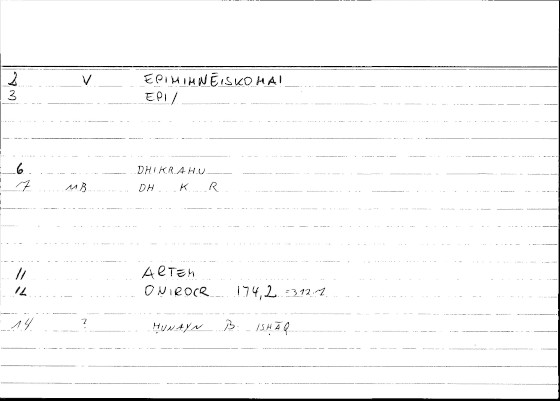 2 V EPIMIMNĒISKOMAI
3 EPI/
6 DHIKRAHU
7 MB DH K R
11 ARTEM
12 ONIROCR 174,2 =312.1
14 ? ḤUNAYN B ISḤĀQ